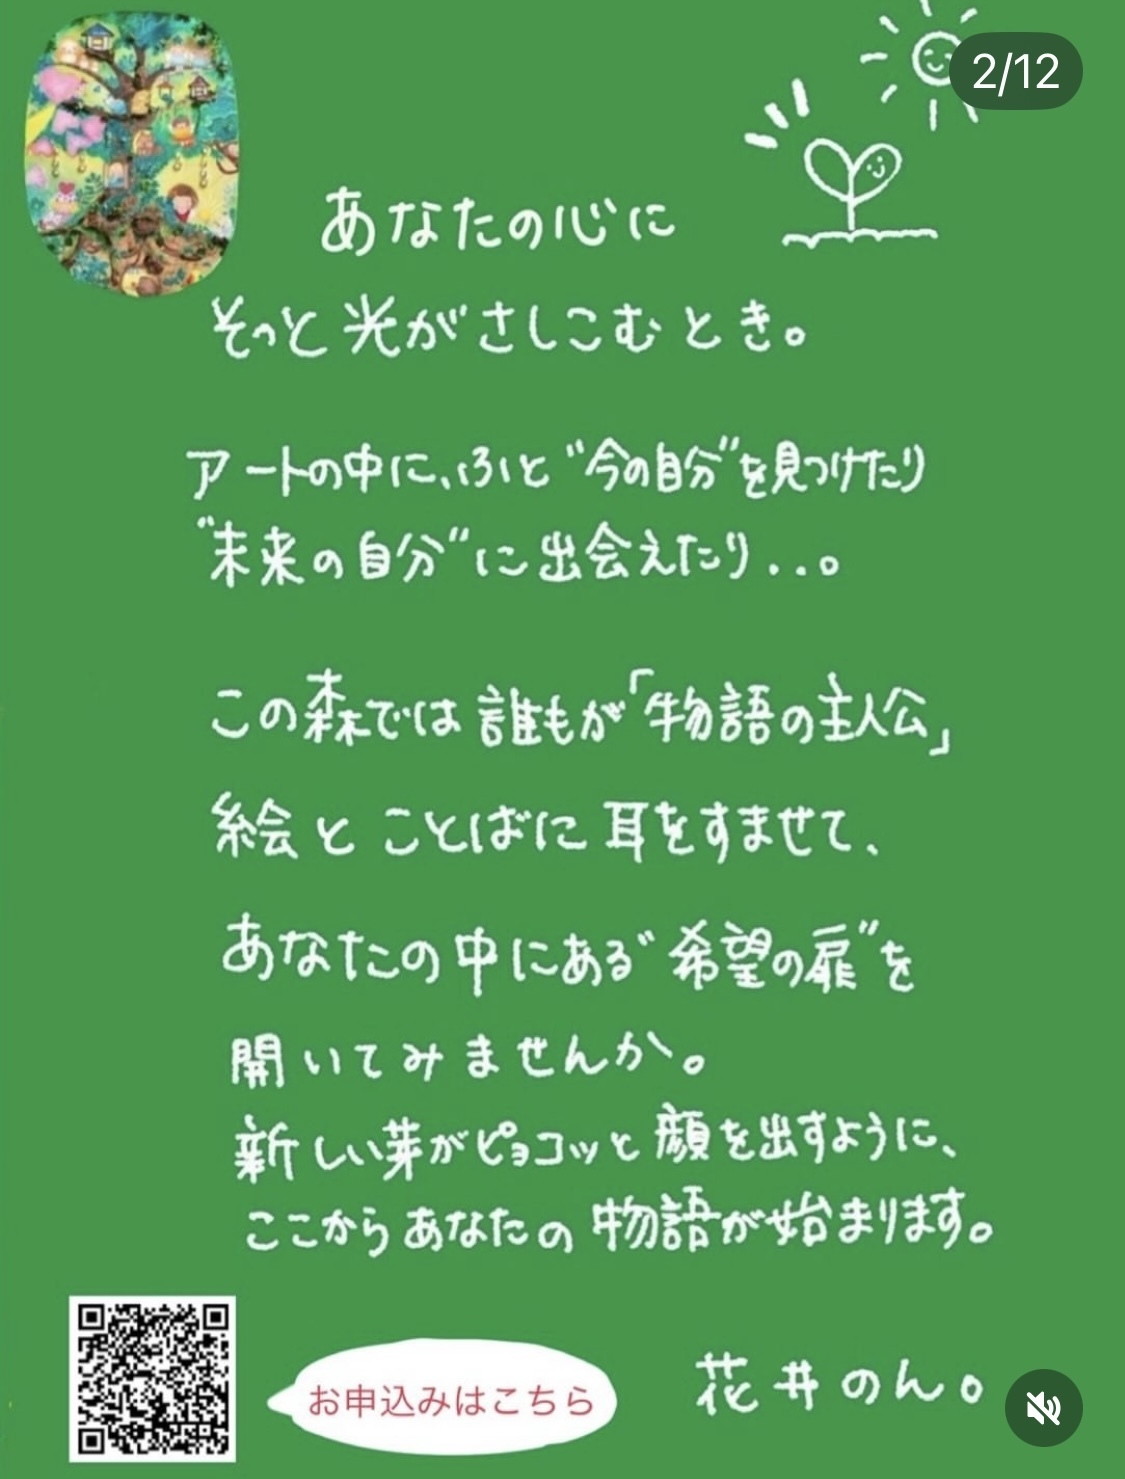 2/12
あなたの心に
そっと光がさしこむとき。
アートの中に、ふと“今の自分”を見つけたり
“未来の自分”に出会えたり...。
この森では誰もが「物語の主人公」
絵とことばに耳をすませて、
あなたの中にある“希望の扉”を
開いてみませんか。
新しい芽がピョコッと顔を出すように、
ここからあなたの物語が始まります。
お申込みはこちら
花井のん。